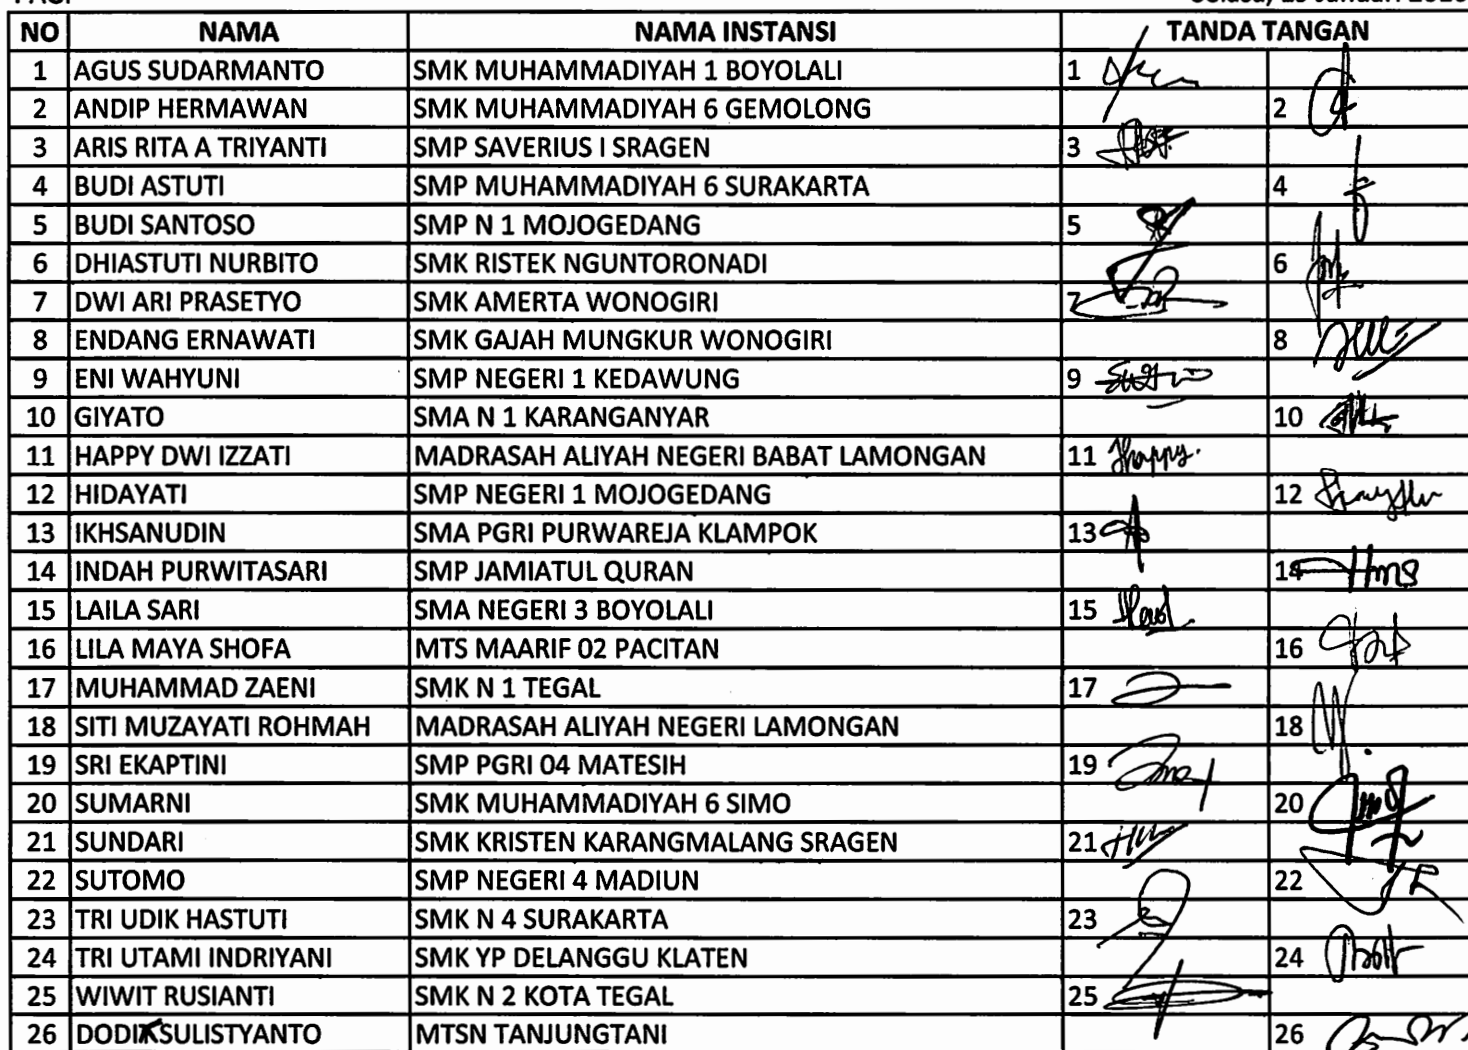 NO NAMA NAMA INSTANSI TANDA TANGAN
1 AGUS SUDARMANTO SMK MUHAMMADIYAH 1 BOYOLALI 1
2 ANDIP HERMAWAN SMK MUHAMMADIYAH 6 GEMOLONG 2
3 ARIS RITA A TRIYANTI SMP SAVERIUS I SRAGEN 3
4 BUDI ASTUTI SMP MUHAMMADIYAH 6 SURAKARTA 4
5 BUDI SANTOSO SMP N 1 MOJOGEDANG 5
6 DHIASTUTI NURBITO SMK RISTEK NGUNTORONADI 6
7 DWI ARI PRASETYO SMK AMERTA WONOGIRI 7
8 ENDANG ERNAWATI SMK GAJAH MUNGKUR WONOGIRI 8
9 ENI WAHYUNI SMP NEGERI 1 KEDAWUNG 9
10 GIYATO SMA N 1 KARANGANYAR 10
11 HAPPY DWI IZZATI MADRASAH ALIYAH NEGERI BABAT LAMONGAN 11 Happy.
12 HIDAYATI SMP NEGERI 1 MOJOGEDANG 12
13 IKHSANUDIN SMA PGRI PURWAREJA KLAMPOK 13
14 INDAH PURWITASARI SMP JAMIATUL QURAN 14
15 LAILA SARI SMA NEGERI 3 BOYOLALI 15
16 LILA MAYA SHOFA MTS MAARIF 02 PACITAN 16
17 MUHAMMAD ZAENI SMK N 1 TEGAL 17
18 SITI MUZAYATI ROHMAH MADRASAH ALIYAH NEGERI LAMONGAN 18
19 SRI EKAPTINI SMP PGRI 04 MATESIH 19
20 SUMARNI SMK MUHAMMADIYAH 6 SIMO 20
21 SUNDARI SMK KRISTEN KARANGMALANG SRAGEN 21
22 SUTOMO SMP NEGERI 4 MADIUN 22
23 TRI UDIK HASTUTI SMK N 4 SURAKARTA 23
24 TRI UTAMI INDRIYANI SMK YP DELANGGU KLATEN 24
25 WIWIT RUSIANTI SMK N 2 KOTA TEGAL 25
26 DODIK SULISTYANTO MTSN TANJUNGTANI 26